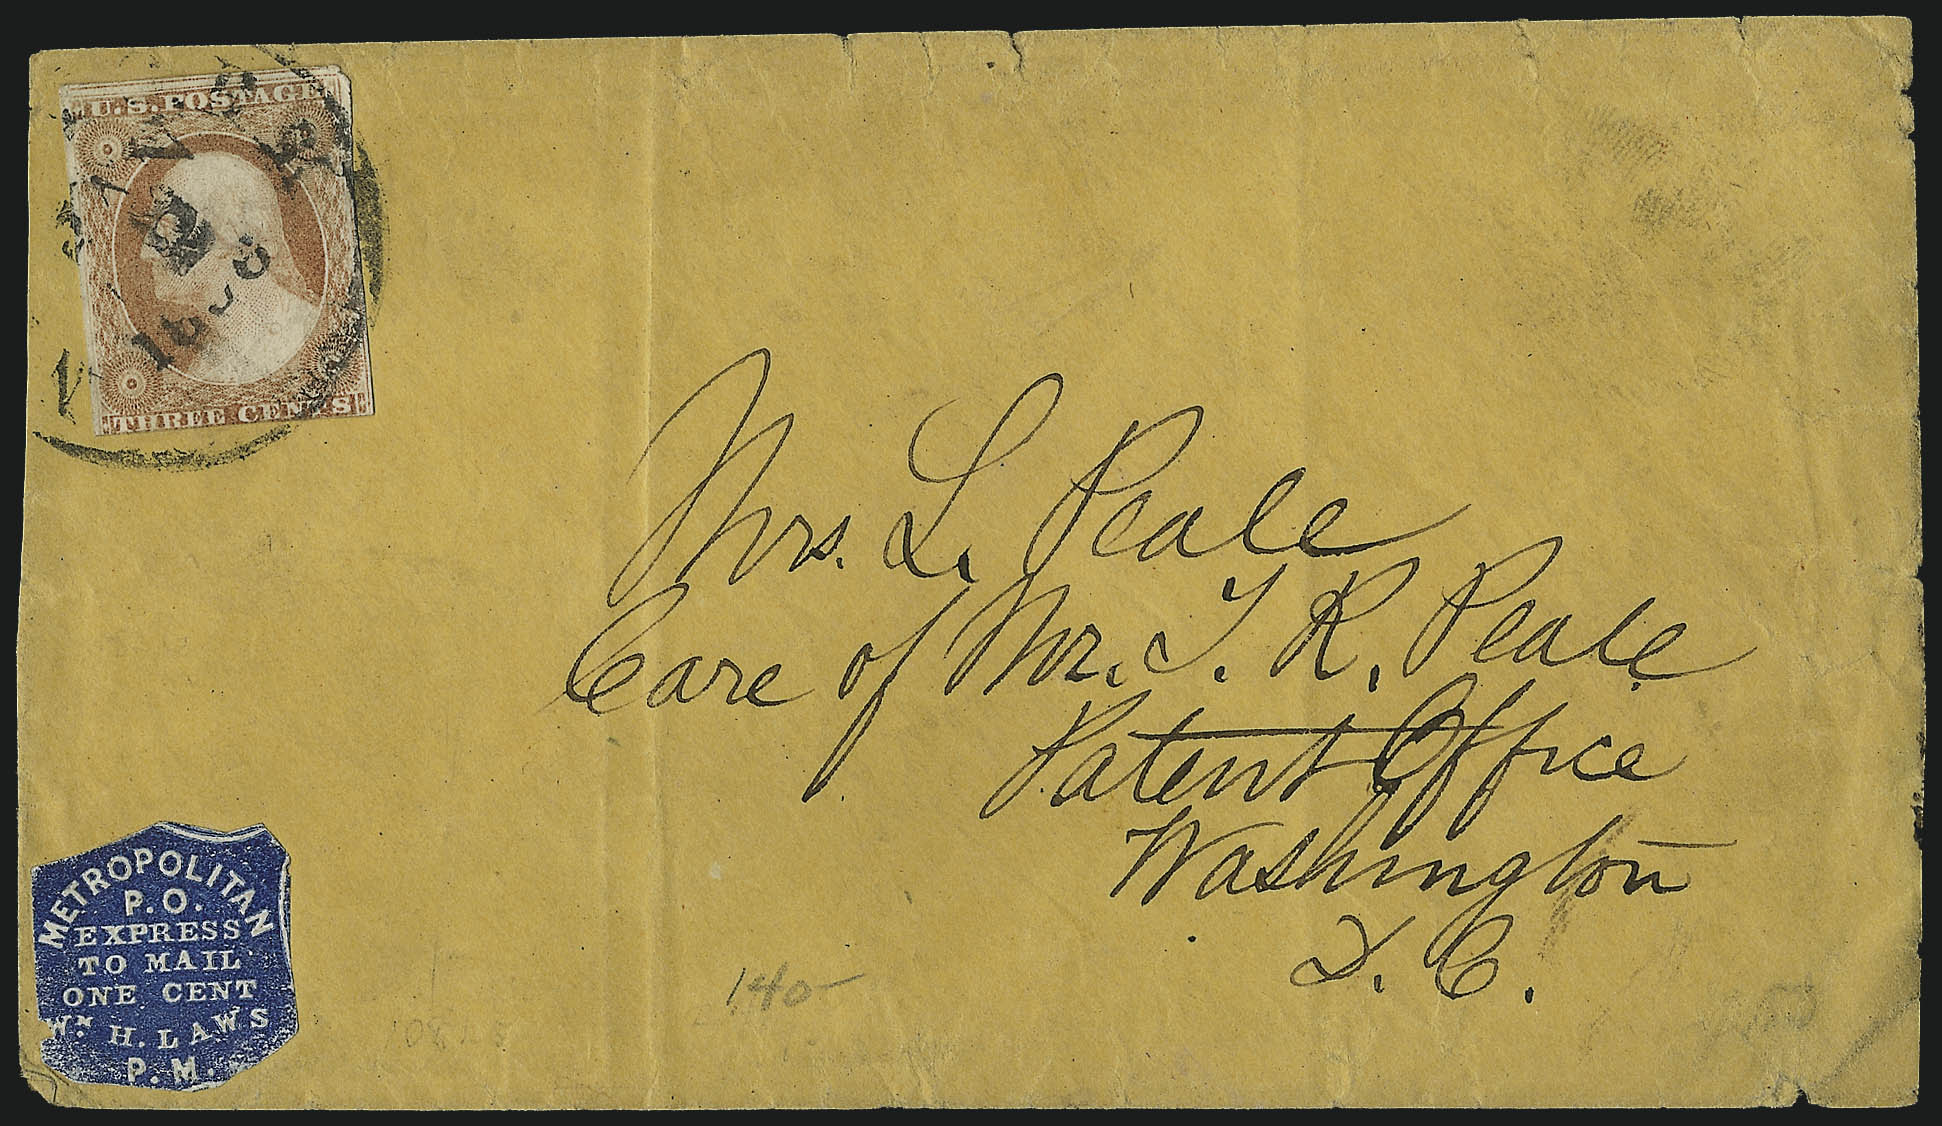 U.S. POSTAGE
THREE CENTS
Mrs. L. Peale
Care of Mr. T. R. Peale
Patent Office
Washington
D. C.
METROPOLITAN
P. O.
EXPRESS
TO MAIL
ONE CENT
WM H. LAWS
P. M.
140